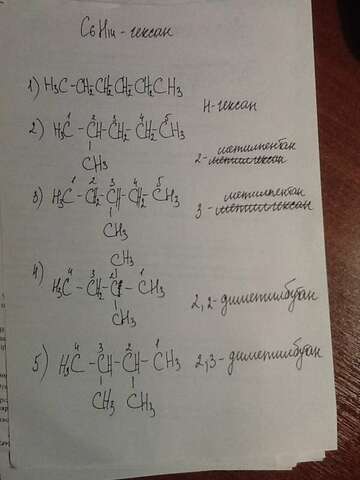 C₆H₁₄ - гексан
1) H₃C-CH₂CH₂CH₂CH₂CH₃
н-гексан
2) H₃C-CH-CH₂-CH₂-CH₃
1 2 3 4 5
CH₃
метилпентан
2-метилгексан
3) H₃C-CH₂-CH-CH₂-CH₃
1 2 3 4 5
CH₃
метилпентан
3-метилгексан
CH₃
4) H₃C-CH₂-C-CH₃
4 3 2 1
CH₃
2,2-диметилбутан
5) H₃C-CH-CH-CH₃
4 3 2 1
CH₃ CH₃
2,3-диметилбутан